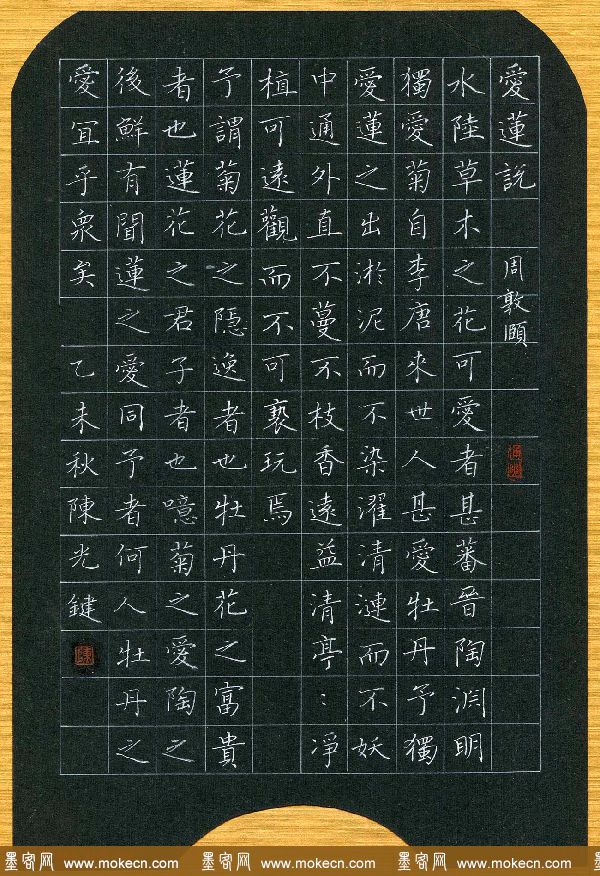 愛蓮說 周敦頤
水陸草木之花可愛者甚蕃晉陶淵明
獨愛菊自李唐來世人甚愛牡丹予獨
愛蓮之出淤泥而不染濯清漣而不妖
中通外直不蔓不枝香遠益清亭：凈
植可遠觀而不可褻玩焉
予謂菊花之隱逸者也牡丹花之富貴
者也蓮花之君子者也噫菊之愛陶之
後鮮有聞蓮之愛同予者何人牡丹之
愛宜乎衆矣 乙未秋陳光鍵
陳
墨客网 www.mokecn.com 墨客网 www.mokecn.com 墨客网 www.mokecn.com 墨客网